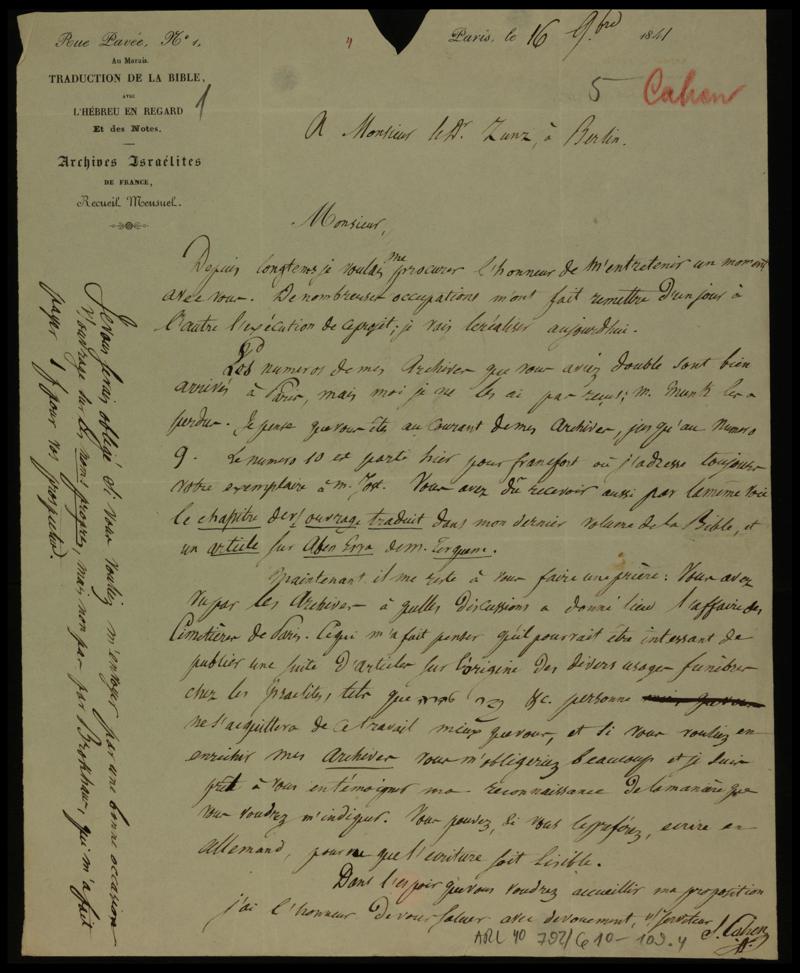 Rue Pavée, N° 1,
Au Marais.
TRADUCTION DE LA BIBLE,
AVEC
L'HÉBREU EN REGARD
Et des Notes.
Archives Israélites
DE FRANCE,
Recueil Mensuel.
1
Paris, le 16 9bre 1841
5 Cahen
A Monsieur le Dr. Zunz, à Berlin.
Monsieur,
Depuis longtems je voulais me procurer l'honneur de m'entretenir un moment
avec vous. De nombreuses occupations m'ont fait remettre d'un jour à
l'autre l'exécution de ce projet; je vais le réaliser aujourdhui.
Les numeros de mes Archives que vous aviez double sont bien
arrivés à Paris, mais moi je ne les ai pas reçus; m. Munk les a
perdus. Je pense que vous êtes au courant de mes Archives, jusqu'au numero
9. Le numero 10 est parti hier pour francfort où j'adresse toujours
votre exemplaire à m. Jost. Vous avez dû recevoir aussi par la même voie
le chapitre de v/ ouvrage traduit dans mon dernier volume de la Bible, et
un article sur Aben Esra de m. Terquem.
Maintenant il me reste à vous faire une prière: Vous avez
vu par les Archives à quelles discussions a donné lieu l'affaire des
Cimetières de Paris. Ce qui m'a fait penser qu'il pourrait être intessant de
publier une suite d'articles sur l'origine des divers usages funèbres
chez les Israélites, tels que &c. personne
ne s'acquittera de ce travail mieux que vous, et si vous vouliez en
enrichir mes Archives vous m'obligeriez beaucoup et je suis
prêt à vous en témoigner ma reconnaissance de la manière que
vous voudrez m'indiquer. Vous pouvez, si vous le préférez, écrire en
allemand, pourvu que l'ecriture soit lisible.
Dans l'espoir que vous voudrez accueillir ma proposition
j'ai l'honneur de vous saluer avec devouement, v/ serviteur
S. Cahen
ARC 4° 792/G 10-109.4
Je vous serais obligé si vous vouliez m'envoyer par une bonne occasion
l'ouvrage sur les noms propres, mais non pas par Brokhaus, qui m'a fait
payer 1 f pour vos prospectus.